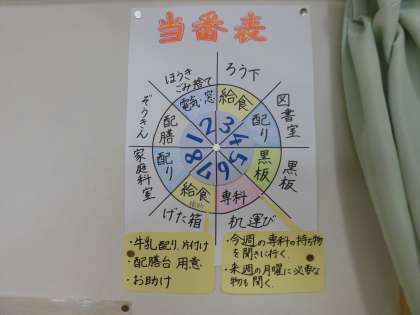 当番表
ほうき
ごみ捨て
ろう下
図書室
黒板
机運び
げた箱
家庭科室
ぞうきん
電気・窓
給食
配り
黒板
専科
給食
配り
配膳
2
3
4
5
6
7
8
1
・牛乳配り、片付け
・配膳台 用意
・お助け
・今週の専科の持ち物
を聞きに行く。
・来週の月曜に必要な
物も聞く。